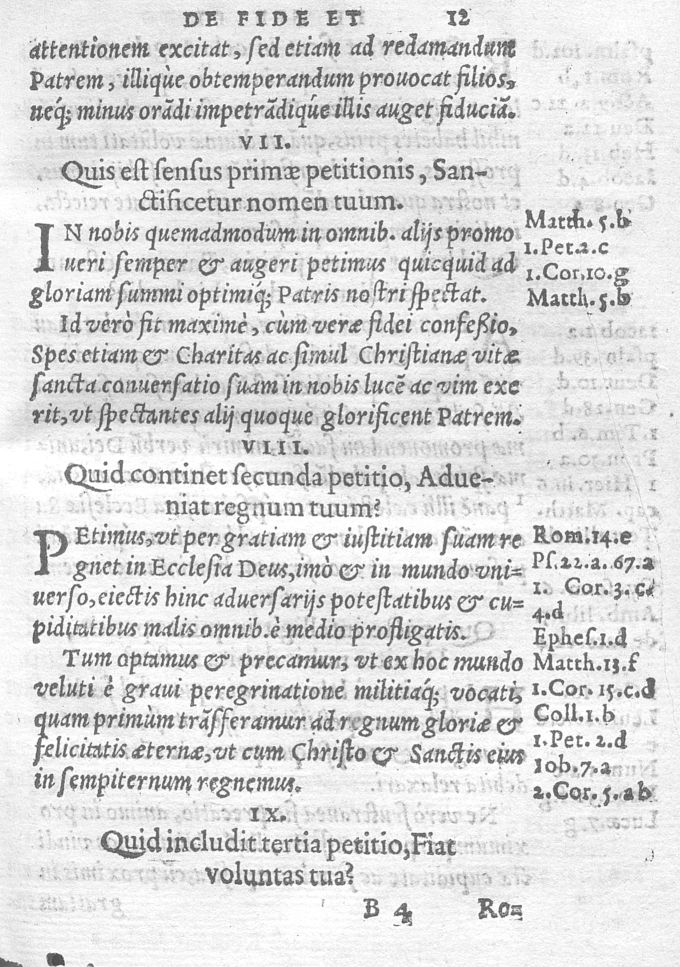 DE FIDE ET 12
attentionem excitat, sed etiam ad redamandum
Patrem, illique obtemperandum prouocat filios,
neq́; minus orādi impetrādique illis auget fiduciā.
VII.
Quis est sensus primæ petitionis, San-
ctificetur nomen tuum.
IN nobis quemadmodum in omnib. alijs promo
ueri semper & augeri petimus quicquid ad
gloriam summi optimiq́; Patris nostri spectat.
Id verò fit maximè, cùm veræ fidei confeßio,
Spes etiam & Charitas ac simul Christianæ vitæ
sancta conuersatio suam in nobis lucē ac vim exe
rit, vt spectantes alij quoque glorificent Patrem.
Matth. 5.b
1.Pet.2.c
1.Cor.10.g
Matth. 5.b
VIII.
Quid continet secunda petitio, Adue-
niat regnum tuum?
PEtimus, vt per gratiam & iustitiam suam re
gnet in Ecclesia Deus, imò & in mundo vni=
uerso, eiectis hinc aduersarijs potestatibus & cu=
piditatibus malis omnib. è medio profligatis.
Tum optamus & precamur, vt ex hoc mundo
veluti è graui peregrinatione militiaq́; vocati,
quam primùm trāsferamur ad regnum gloriæ &
felicitatis æternæ, vt cum Christo & Sanctis eius
in sempiternum regnemus.
Rom.14.e
Ps.22.a.67.a
1. Cor.3.c.
4.d
Ephes.1.d
Matth.13.f
1.Cor. 15.c.d
Coll.1.b
1.Pet. 2.d
Iob.7.a
2.Cor.5.ab
IX.
Quid includit tertia petitio, Fiat
voluntas tua?
B 4 Ro=